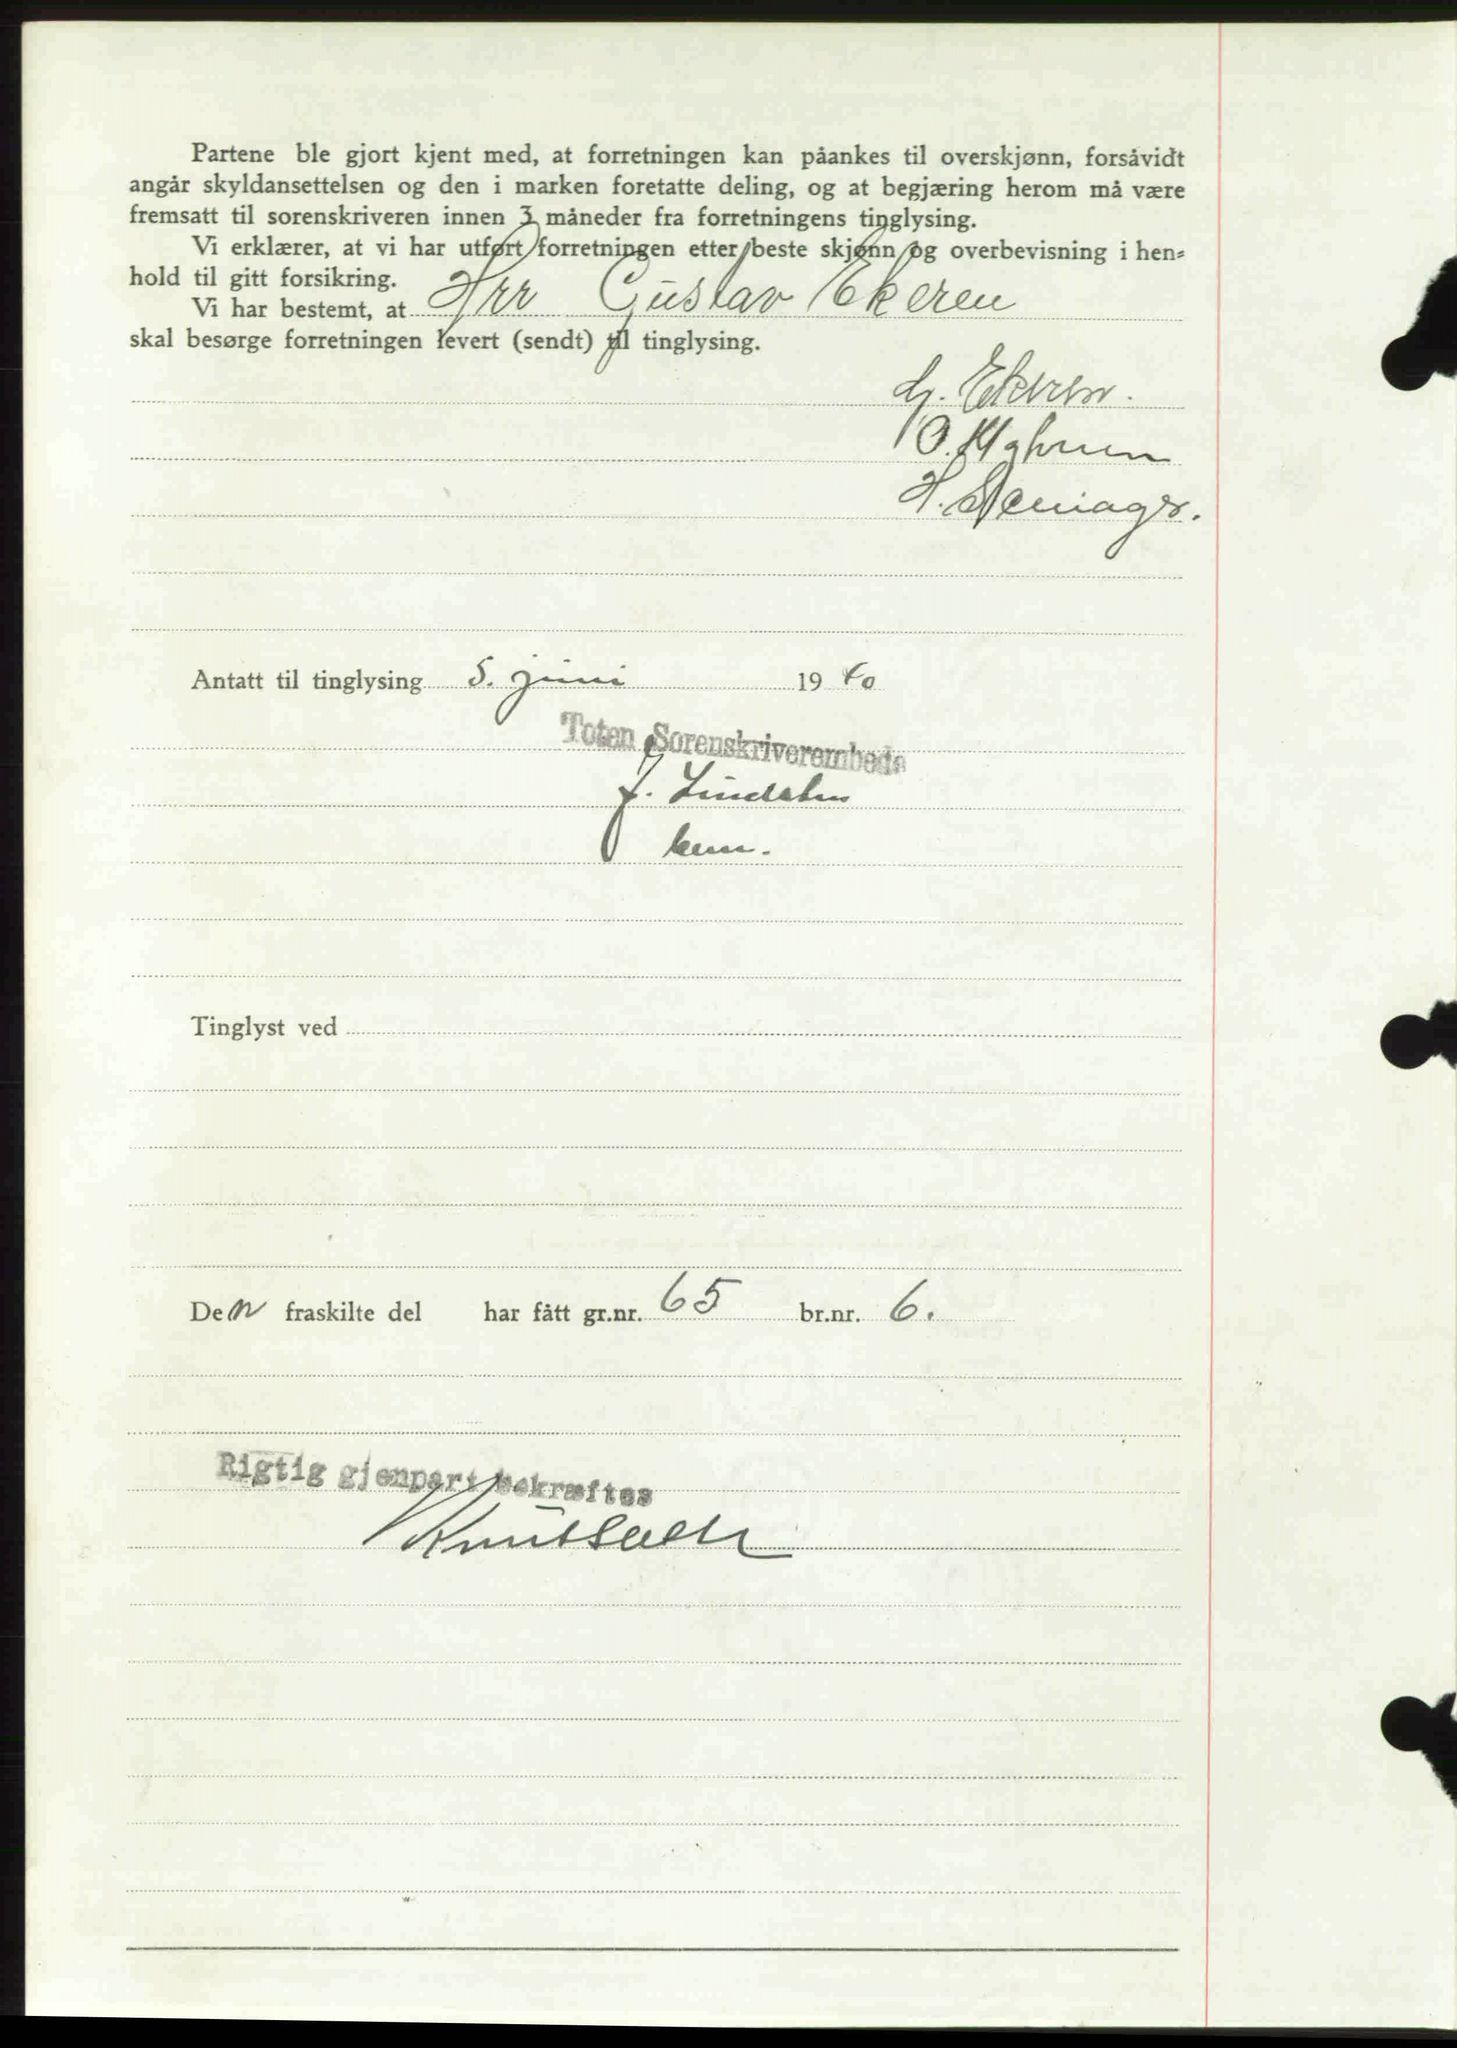 Partene ble gjort kjent med, at forretningen kan påankes til overskjønn, forsåvidt
angår skyldansettelsen og den i marken foretatte deling, og at begjæring herom må være
fremsatt til sorenskriveren innen 3 måneder fra forretningens tinglysing.
Vi erklærer, at vi har utført forretningen etter beste skjønn og overbevisning i hen-
hold til gitt forsikring.
Vi har bestemt, at Hrr Gustav Ekeren
skal besørge forretningen levert (sendt) til tinglysing.
G. Ekeren.
O.
H.
Antatt til tinglysing 5. juni 1940
Toten Sorenskriverembede
J.
Tinglyst ved
Den fraskilte del har fått gr.nr. 65 br.nr. 6.
Rigtig gjenpart bekræftes